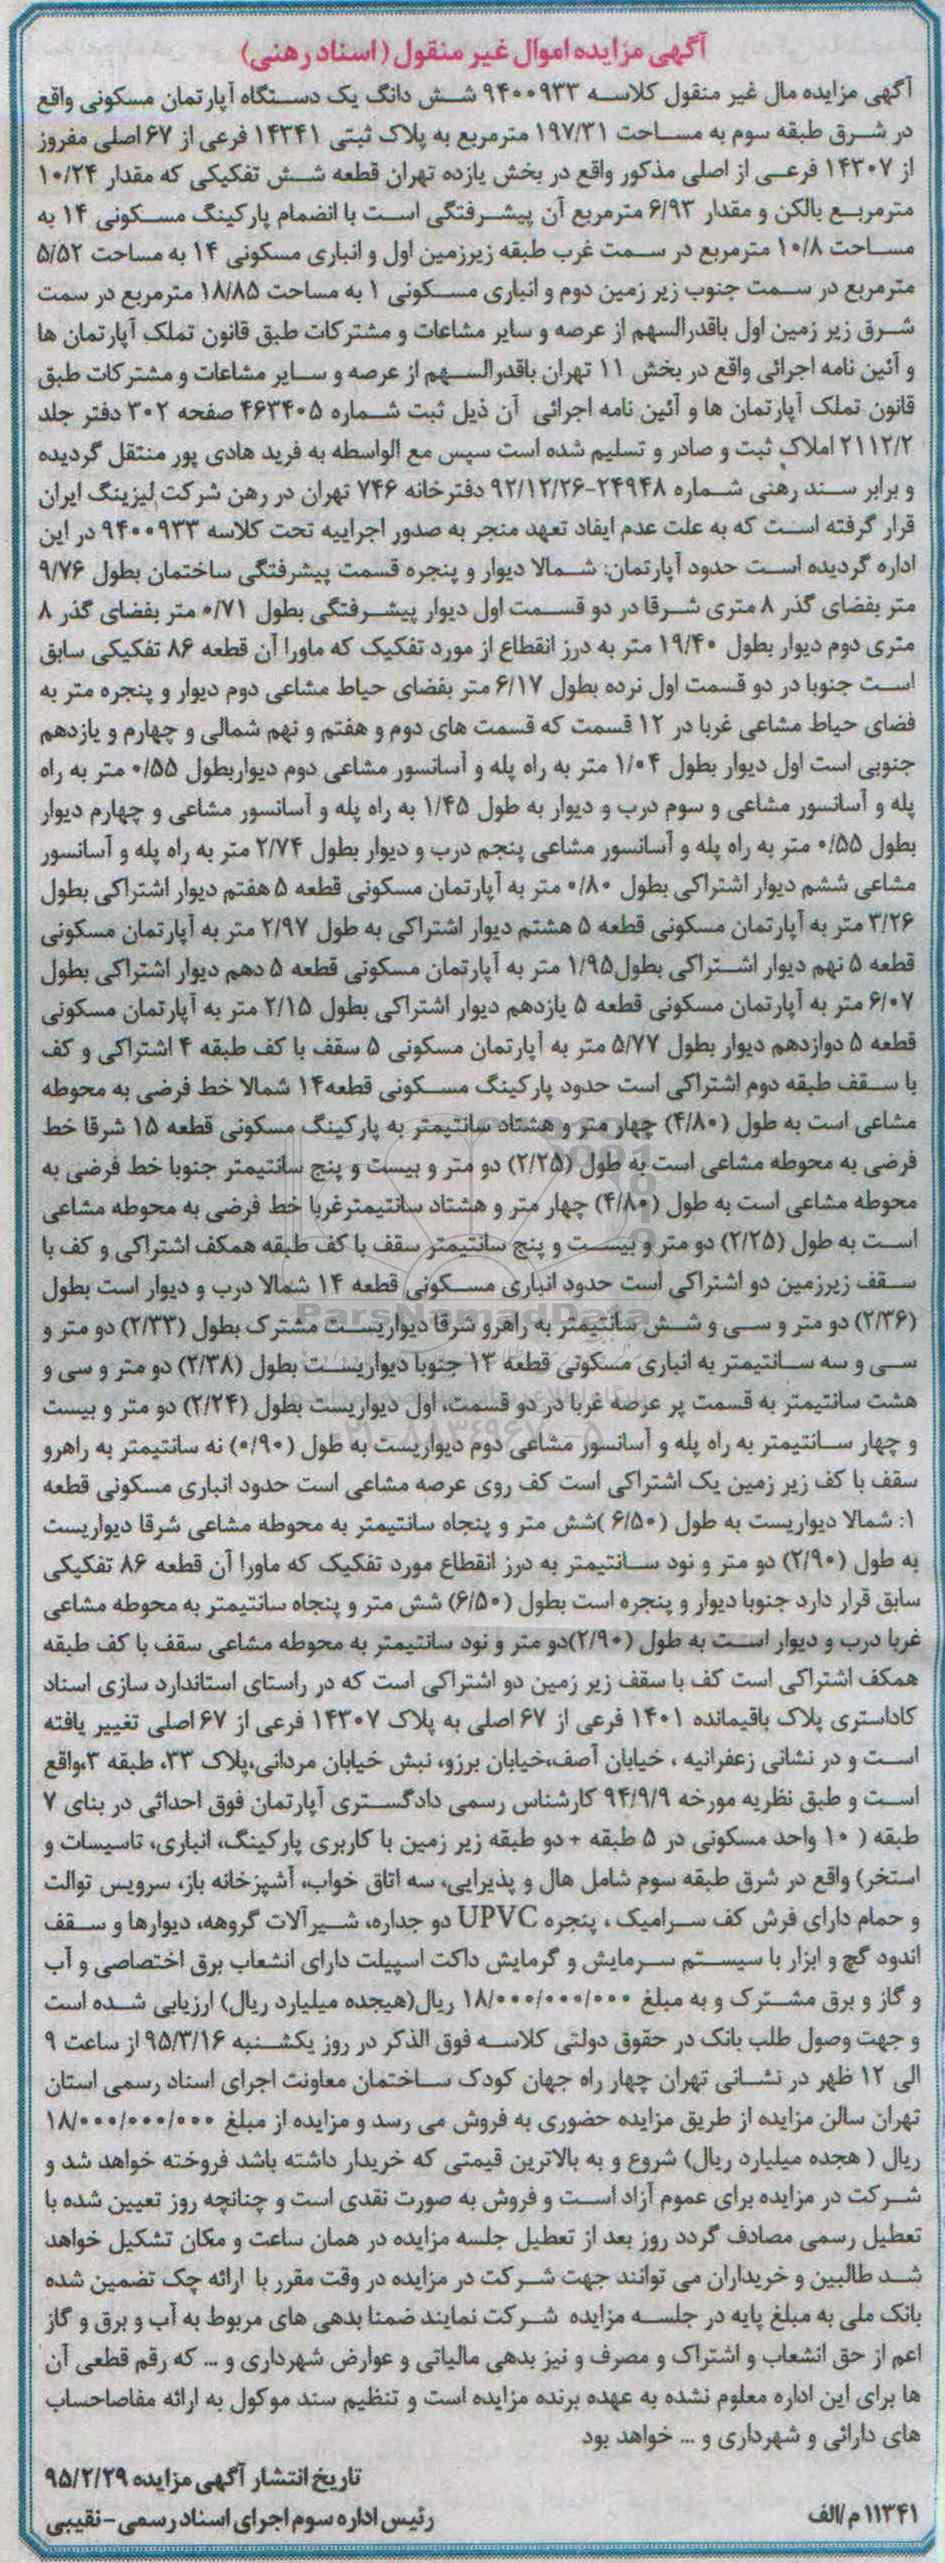 آگهی مزایده اموال غیر منقول (اسناد رهنی)
آگهی مزایده مال غیر منقول کلاسه ۹۴۰۰۹۳۳ شش دانگ یک دستگاه آپارتمان مسکونی واقع
در شرق طبقه سوم به مساحت ۱۹۷/۳۱ مترمربع به پلاک ثبتی ۱۴۳۴۱ فرعی از ۶۷ اصلی مفروز
از ۱۴۳۰۷ فرعی از اصلی مذکور واقع در بخش یازده تهران قطعه شش تفکیکی که مقدار ۱۰/۲۴
مترمربع بالکن و مقدار ۶/۹۳ مترمربع آن پیشرفتگی است با انضمام پارکینگ مسکونی ۱۴ به
مساحت ۱۰/۸ مترمربع در سمت غرب طبقه زیرزمین اول و انباری مسکونی ۱۴ به مساحت ۵/۵۲
مترمربع در سمت جنوب زیر زمین دوم و انباری مسکونی ۱ به مساحت ۱۸/۸۵ مترمربع در سمت
شرق زیر زمین اول باقدرالسهم از عرصه و سایر مشاعات و مشترکات طبق قانون تملک آپارتمان ها
و آئین نامه اجرائی واقع در بخش ۱۱ تهران باقدرالسهم از عرصه و سایر مشاعات و مشترکات طبق
قانون تملک آپارتمان ها و آئین نامه اجرائی آن ذیل ثبت شماره ۴۶۳۴۰۵ صفحه ۳۰۲ دفتر جلد
۲۱۱۲/۲ املاک ثبت و صادر و تسلیم شده است سپس مع الواسطه به فرید هادی پور منتقل گردیده
و برابر سند رهنی شماره ۲۴۹۴۸-۹۲/۱۲/۲۶ دفترخانه ۷۴۶ تهران در رهن شرکت لیزینگ ایران
قرار گرفته است که به علت عدم ایفاد تعهد منجر به صدور اجراییه تحت کلاسه ۹۴۰۰۹۳۳ در این
اداره گردیده است حدود آپارتمان: شمالا دیوار و پنجره قسمت پیشرفتگی ساختمان بطول ۹/۷۶
متر بفضای گذر ۸ متری شرقا در دو قسمت اول دیوار پیشرفتگی بطول ۰/۷۱ متر بفضای گذر ۸
متری دوم دیوار بطول ۱۹/۴۰ متر به درز انقطاع از مورد تفکیک که ماورا آن قطعه ۸۶ تفکیکی سابق
است جنوبا در دو قسمت اول نرده بطول ۶/۱۷ متر بفضای حیاط مشاعی دوم دیوار و پنجره متر به
فضای حیاط مشاعی غربا در ۱۲ قسمت که قسمت های دوم و هفتم و نهم شمالی و چهارم و یازدهم
جنوبی است اول دیوار بطول ۱/۰۴ متر به راه پله و آسانسور مشاعی دوم دیواربطول ۰/۵۵ متر به راه
پله و آسانسور مشاعی و سوم درب و دیوار به طول ۱/۴۵ به راه پله و آسانسور مشاعی و چهارم دیوار
بطول ۰/۵۵ متر به راه پله و آسانسور مشاعی پنجم درب و دیوار بطول ۲/۷۴ متر به راه پله و آسانسور
مشاعی ششم دیوار اشتراکی بطول ۰/۸۰ متر به آپارتمان مسکونی قطعه ۵ هفتم دیوار اشتراکی بطول
۳/۲۶ متر به آپارتمان مسکونی قطعه ۵ هشتم دیوار اشتراکی به طول ۲/۹۷ متر به آپارتمان مسکونی
قطعه ۵ نهم دیوار اشتراکی بطول۱/۹۵ متر به آپارتمان مسکونی قطعه ۵ دهم دیوار اشتراکی بطول
۶/۰۷ متر به آپارتمان مسکونی قطعه ۵ یازدهم دیوار اشتراکی بطول ۲/۱۵ متر به آپارتمان مسکونی
قطعه ۵ دوازدهم دیوار بطول ۵/۷۷ متر به آپارتمان مسکونی ۵ سقف با کف طبقه ۴ اشتراکی و کف
با سقف طبقه دوم اشتراکی است حدود پارکینگ مسکونی قطعه۱۴ شمالا خط فرضی به محوطه
مشاعی است به طول (۴/۸۰) چهار متر و هشتاد سانتیمتر به پارکینگ مسکونی قطعه ۱۵ شرقا خط
فرضی به محوطه مشاعی است به طول (۲/۲۵) دو متر و بیست و پنج سانتیمتر جنوبا خط فرضی به
محوطه مشاعی است به طول (۴/۸۰) چهار متر و هشتاد سانتیمترغربا خط فرضی به محوطه مشاعی
است به طول (۲/۲۵) دو متر و بیست و پنج سانتیمتر سقف با کف طبقه همکف اشتراکی و کف با
سقف زیرزمین دو اشتراکی است حدود انباری مسکونی قطعه ۱۴ شمالا درب و دیوار است بطول
(۲/۳۶) دو متر و سی و شش سانتیمتر به راهرو شرقا دیواریست مشترک بطول (۲/۳۳) دو متر و
سی و سه سانتیمتر به انباری مسکونی قطعه ۱۳ جنوبا دیواریست بطول (۲/۳۸) دو متر و سی و
هشت سانتیمتر به قسمت پر عرصه غربا در دو قسمت، اول دیواریست بطول (۲/۲۴) دو متر و بیست
و چهار سانتیمتر به راه پله و آسانسور مشاعی دوم دیواریست به طول (۰/۹۰) نه سانتیمتر به راهرو
سقف با کف زیر زمین یک اشتراکی است کف روی عرصه مشاعی است حدود انباری مسکونی قطعه
۱: شمالا دیواریست به طول (۶/۵۰) شش متر و پنجاه سانتیمتر به محوطه مشاعی شرقا دیواریست
به طول (۲/۹۰) دو متر و نود سانتیمتر به درز انقطاع مورد تفکیک که ماورا آن قطعه ۸۶ تفکیکی
سابق قرار دارد جنوبا دیوار و پنجره است بطول (۶/۵۰) شش متر و پنجاه سانتیمتر به محوطه مشاعی
غربا درب و دیوار است به طول (۲/۹۰)دو متر و نود سانتیمتر به محوطه مشاعی سقف با کف طبقه
همکف اشتراکی است کف با سقف زیر زمین دو اشتراکی است که در راستای استاندارد سازی اسناد
کاداستری پلاک باقیمانده ۱۴۰۱ فرعی از ۶۷ اصلی به پلاک ۱۴۳۰۷ فرعی از ۶۷ اصلی تغییر یافته
است و در نشانی زعفرانیه ، خیابان آصف،خیابان برزو، نبش خیابان مردانی،پلاک ۳۳، طبقه ۳،واقع
است و طبق نظریه مورخه ۹۴/۹/۹ کارشناس رسمی دادگستری آپارتمان فوق احداثی در بنای ۷
طبقه ( ۱۰ واحد مسکونی در ۵ طبقه + دو طبقه زیر زمین با کاربری پارکینگ، انباری، تاسیسات و
استخر) واقع در شرق طبقه سوم شامل هال و پذیرایی، سه اتاق خواب، آشپزخانه باز، سرویس توالت
و حمام دارای فرش کف سرامیک ، پنجره UPVC دو جداره، شیرآلات گروهه، دیوارها و سقف
اندود گچ و ابزار با سیستم سرمایش و گرمایش داکت اسپیلت دارای انشعاب برق اختصاصی و آب
و گاز و برق مشترک و به مبلغ ۱۸/۰۰۰/۰۰۰/۰۰۰ ریال(هیجده میلیارد ریال) ارزیابی شده است
و جهت وصول طلب بانک در حقوق دولتی کلاسه فوق الذکر در روز یکشنبه ۹۵/۳/۱۶ از ساعت ۹
الی ۱۲ ظهر در نشانی تهران چهار راه جهان کودک ساختمان معاونت اجرای اسناد رسمی استان
تهران سالن مزایده از طریق مزایده حضوری به فروش می رسد و مزایده از مبلغ ۱۸/۰۰۰/۰۰۰/۰۰۰
ریال ( هجده میلیارد ریال) شروع و به بالاترین قیمتی که خریدار داشته باشد فروخته خواهد شد و
شرکت در مزایده برای عموم آزاد است و فروش به صورت نقدی است و چنانچه روز تعیین شده با
تعطیل رسمی مصادف گردد روز بعد از تعطیل جلسه مزایده در همان ساعت و مکان تشکیل خواهد
شد طالبین و خریداران می توانند جهت شرکت در مزایده در وقت مقرر با ارائه چک تضمین شده
بانک ملی به مبلغ پایه در جلسه مزایده شرکت نمایند ضمنا بدهی های مربوط به آب و برق و گاز
اعم از حق انشعاب و اشتراک و مصرف و نیز بدهی مالیاتی و عوارض شهرداری و ... که رقم قطعی آن
ها برای این اداره معلوم نشده به عهده برنده مزایده است و تنظیم سند موکول به ارائه مفاصاحساب
های دارائی و شهرداری و ... خواهد بود
تاریخ انتشار آگهی مزایده ۹۵/۲/۲۹
رئیس اداره سوم اجرای اسناد رسمی - نقیبی
۱۱۳۴۱ م/الف
ParsNamadData